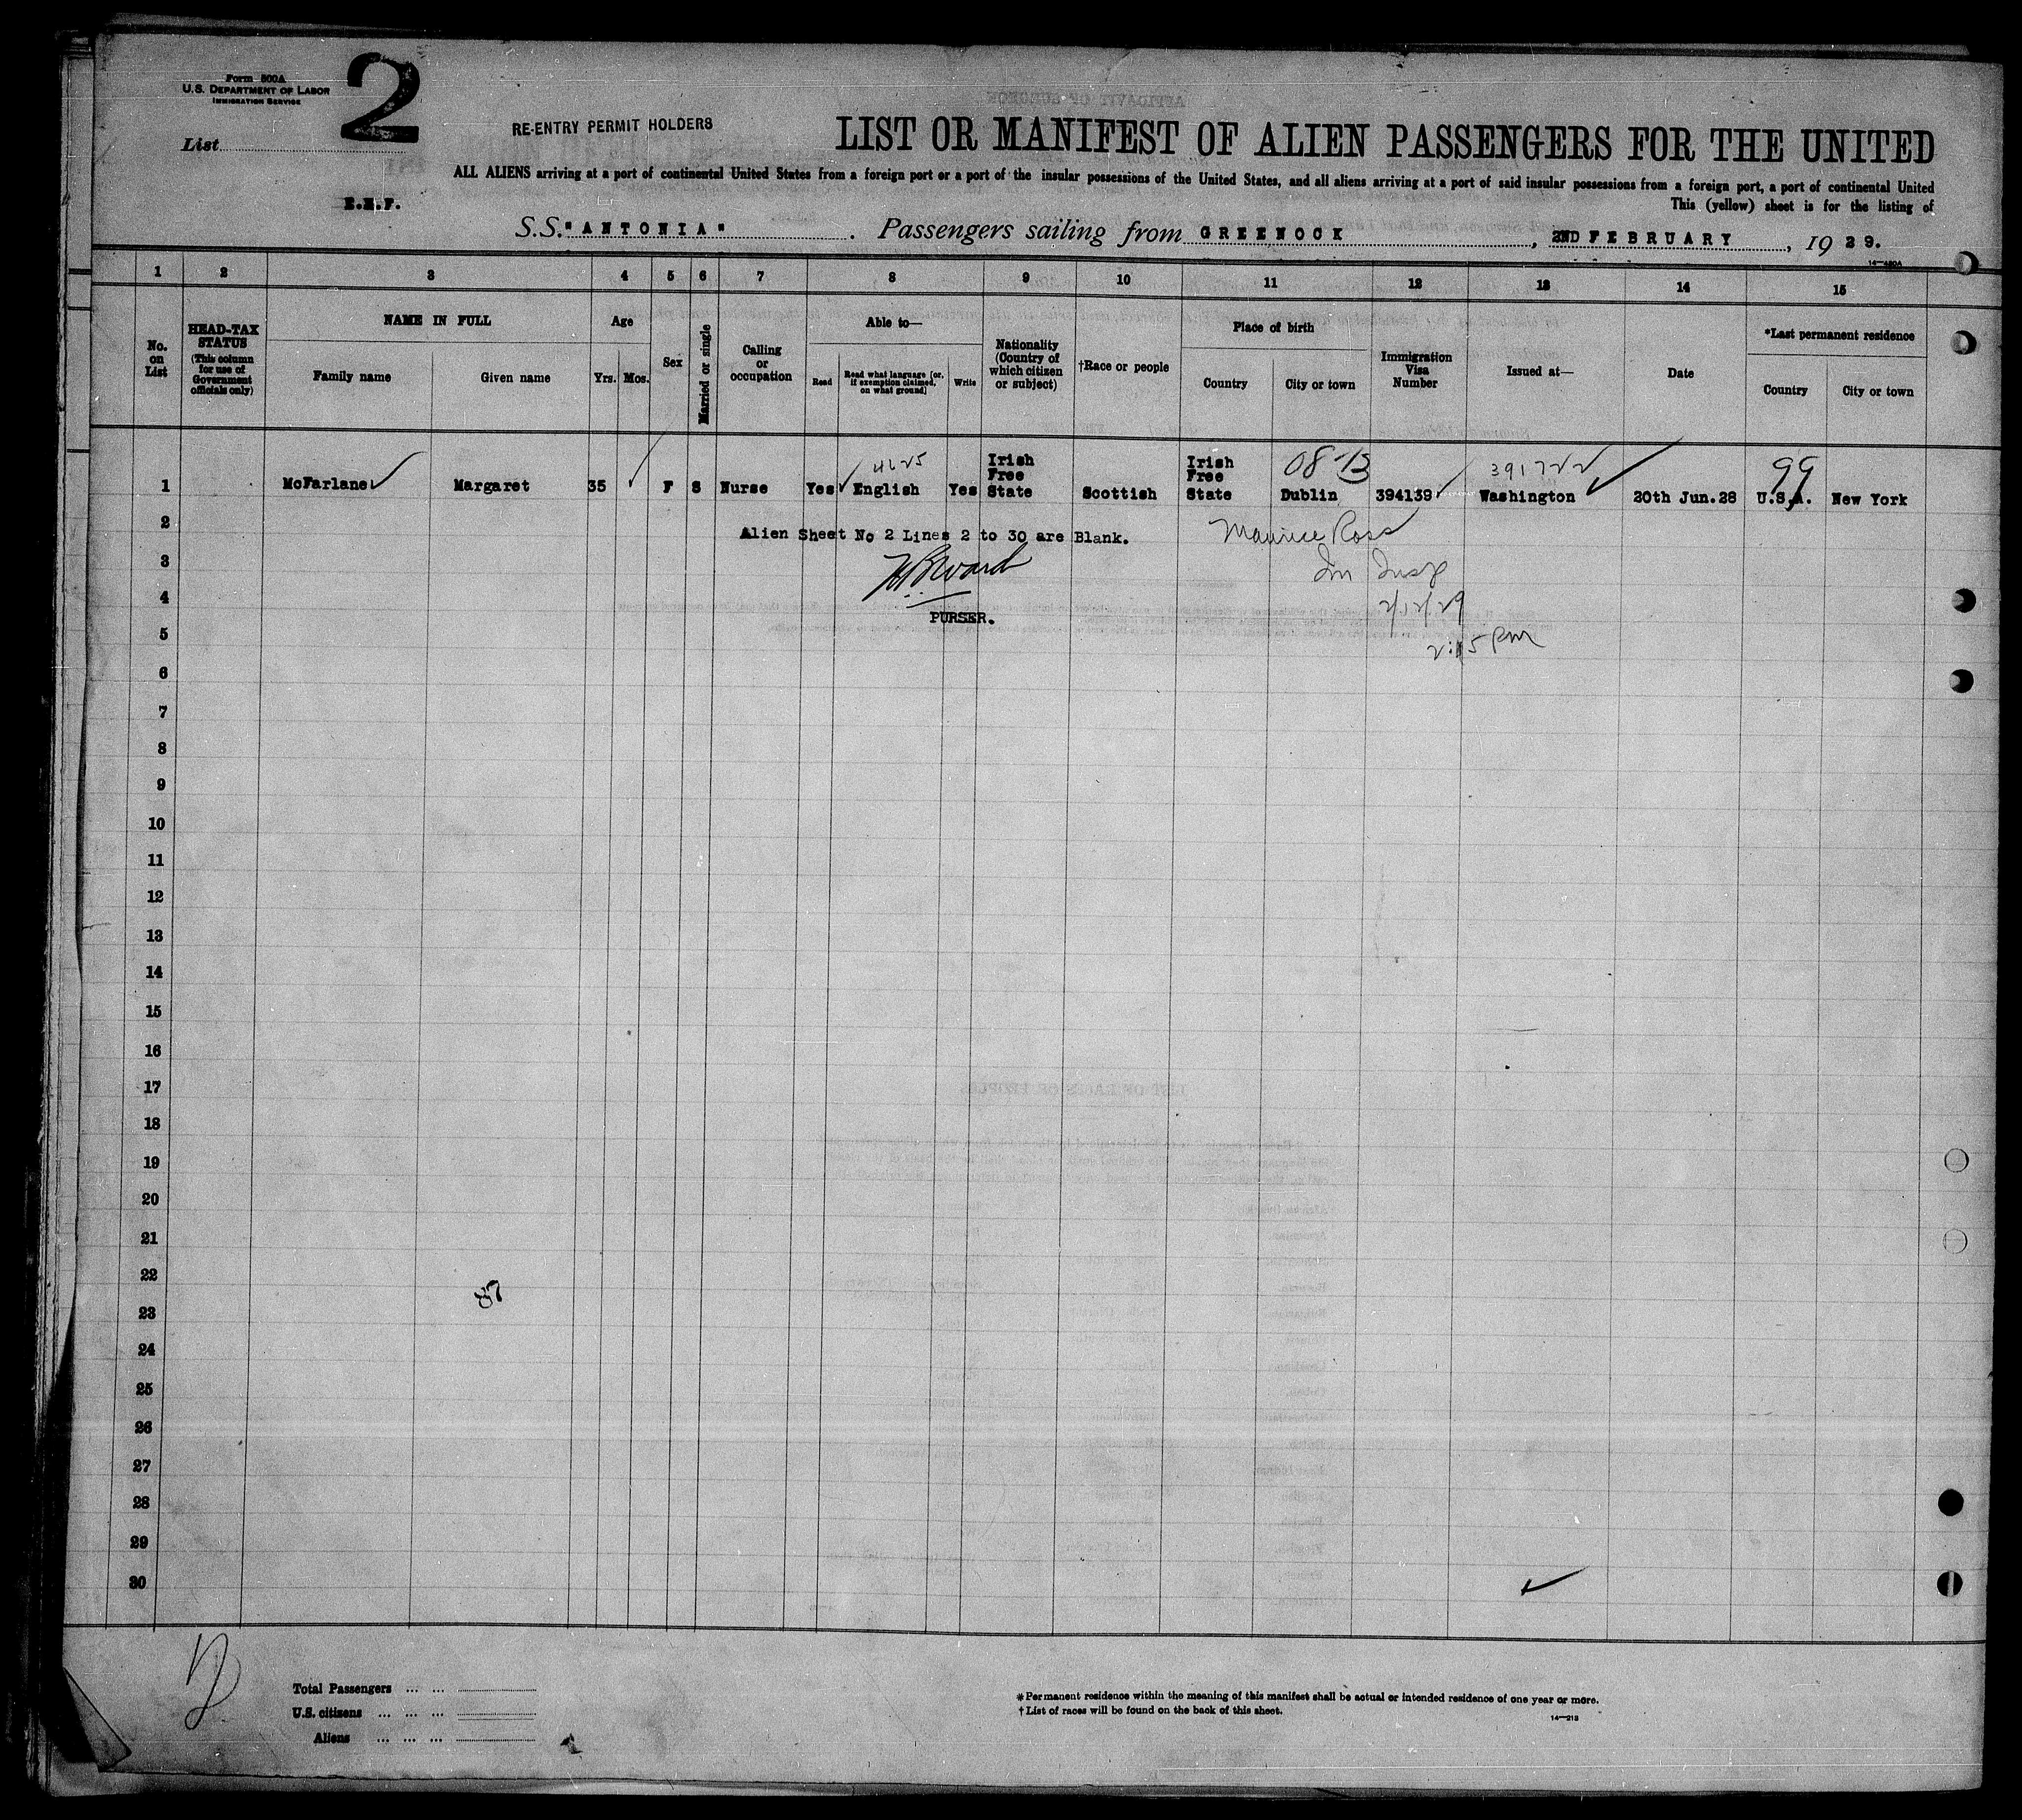 Form 500A
U.S. DEPARTMENT OF LABOR
IMMIGRATION SERVICE
List 2
RE-ENTRY PERMIT HOLDERS
LIST OR MANIFEST OF ALIEN PASSENGERS FOR THE UNITED
ALL ALIENS arriving at a port of continental United States from a foreign port or a port of the insular possessions of the United States, and all aliens arriving at a port of said insular possessions from a foreign port, a port of continental United
This (yellow) sheet is for the listing of
S.S. "ANTONIA". Passengers sailing from GREENOCK, 2ND FEBRUARY, 1929.
14—480A
1 2 3 4 5 6 7 8 9 10 11 12 13 14 15
No. on List
HEAD-TAX STATUS
(This column for use of Government officials only)
NAME IN FULL
Family name Given name
Age
Yrs. Mos.
Sex
Married or single
Calling or occupation
Able to—
Read
Read what language [or, if exemption claimed, on what ground]
Write
Nationality (Country of which citizen or subject)
†Race or people
Place of birth
Country City or town
Immigration Visa Number
Issued at—
Date
*Last permanent residence
Country City or town
4625
08-13
391722
99
1 McFarlane Margaret 35 F S Nurse Yes English Yes Irish Free State Scottish Irish Free State Dublin 394139 Washington 20th Jun.28 U.S.A. New York
2
Alien Sheet No 2 Lines 2 to 30 are Blank.
Maurice Ross
3
Im Insp
4
2/12/29
PURSER.
5
2:15 PM
6
7
8
9
10
11
12
13
14
15
16
17
18
19
20
21
22
87
23
24
25
26
27
28
29
30
Total Passengers ... ...
U.S. citizens ... ... ...
Aliens ... ... ...
*Permanent residence within the meaning of this manifest shall be actual or intended residence of one year or more.
†List of races will be found on the back of this sheet.
14—213